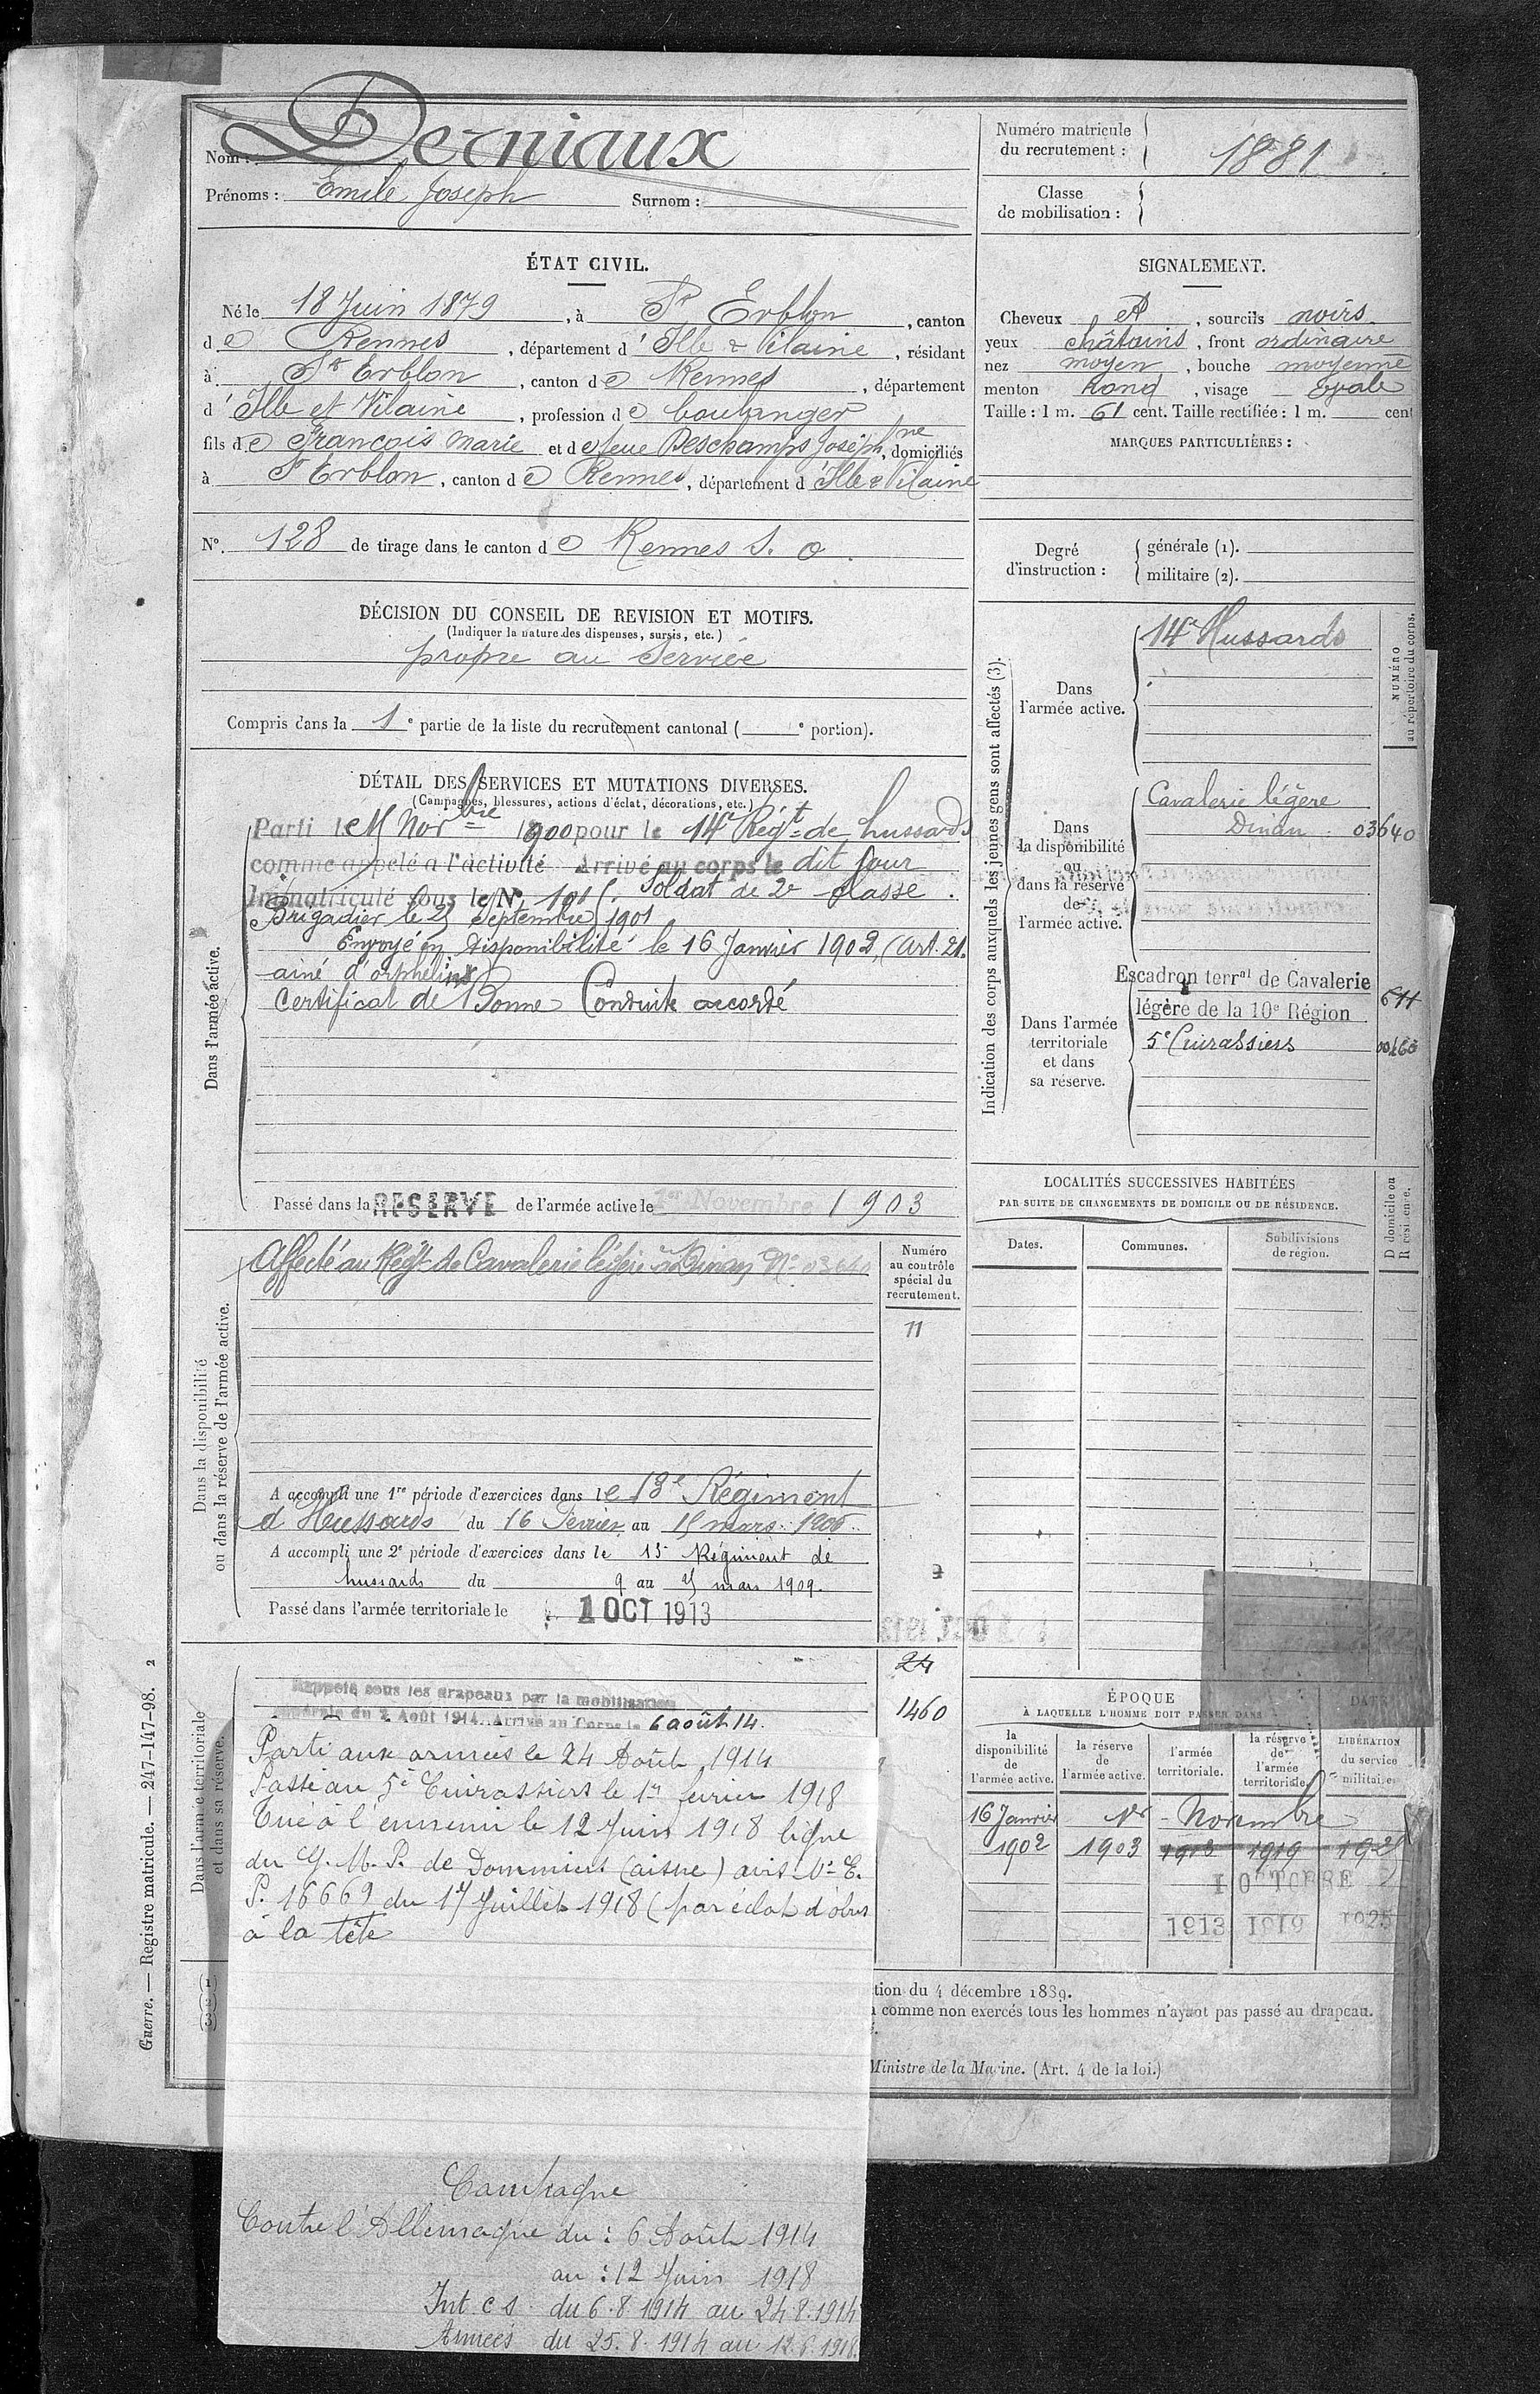 Nom : Derniaux
Prénoms : Emile Joseph Surnom :
Numéro matricule du recrutement : 1881
Classe de mobilisation :
ÉTAT CIVIL.
Né le 18 Juin 1879, à St Erblon, canton
de Rennes, département d' Ille & Vilaine, résidant
à St Erblon, canton de Rennes, département
d' Ille et Vilaine, profession de boulanger
fils de François Marie et de feue Deschamps Joséphne, domiciliés
à St Erblon, canton de Rennes, département d' Ille & Vilaine
N° 128 de tirage dans le canton de Rennes S. O.
SIGNALEMENT.
Cheveux et, sourcils noirs
yeux châtains, front ordinaire
nez moyen, bouche moyenne
menton Rond, visage ovale
Taille : 1 m. 61 cent. Taille rectifiée : 1 m. cent
MARQUES PARTICULIÈRES :
Degré d'instruction :
générale (1).
militaire (2).
DÉCISION DU CONSEIL DE REVISION ET MOTIFS.
(Indiquer la nature des dispenses, sursis, etc.)
propre au Service
Compris dans la 1e partie de la liste du recrutement cantonal ( e portion).
DÉTAIL DES SERVICES ET MUTATIONS DIVERSES.
(Campagnes, blessures, actions d'éclat, décorations, etc.)
Dans l'armée active.
Parti le 15 Novbre 1900 pour le 14e Régt de hussards
comme appelé a l'activité Arrivé au corps le dit jour
Immatriculé sous le N° Soldat de 2e classe.
Brigadier le 25 Septembre 1901
Envoyé en disponibilité le 16 Janvier 1902, (Art. 21.
ainé d'orphelins
Certificat de Bonne Conduite accordé
Passé dans la RESERVE de l'armée active le 1er Novembre 1903
Indication des corps auxquels les jeunes gens sont affectés (3).
NUMÉRO au répertoire du corps.
Dans l'armée active.
14e Hussards
Dans la disponibilité ou dans la réserve de l'armée active.
Cavalerie légère
Dinan 03640
Dans l'armée territoriale et dans sa réserve.
Escadron terral de Cavalerie
légère de la 10e Région 611
5e Cuirassiers
LOCALITÉS SUCCESSIVES HABITÉES
PAR SUITE DE CHANGEMENTS DE DOMICILE OU DE RÉSIDENCE.
Dates. Communes. Subdivisions de région. D domicile ou R résidence.
Dans la disponibilité ou dans la réserve de l'armée active.
Affecté au Régt de Cavalerie légère à Dinan N° 03640
Numéro au contrôle spécial du recrutement.
11
A accompli une 1re période d'exercices dans le 13e Régiment
d'Hussards du 16 Février au 15 mars 1906.
A accompli une 2e période d'exercices dans le 13e Régiment de
hussards du 9 au 25 mars 1909.
Passé dans l'armée territoriale le 1 OCT 1913
24
1460
Dans l'armée territoriale et dans sa réserve.
Rappelé sous les drapeaux par la mobilisation
générale du 2 Août 1914. Arrivé au Corps le 6 août 14.
Parti aux armées le 24 Août 1914
Passé au 5e Cuirassiers le 1er février 1918
Tué à l'ennemi le 12 Juin 1918 ligne
du G. M. P. de Dommiers (aisne) avis N° E.
P. 16669 du 17 Juillet 1918 (par éclat d'obus
à la tête
ÉPOQUE
À LAQUELLE L'HOMME DOIT PASSER DANS
DATE
la disponibilité de l'armée active.
la réserve de l'armée active.
l'armée territoriale.
la réserve de l'armée territoriale.
LIBÉRATION du service militaire
16 Janvier 1er Novembre
1902 1903 1913 1919 192
1 OCTOBRE
1913 1919 1925
tion du 4 décembre 1889.
comme non exercés tous les hommes n'ayant pas passé au drapeau.
Ministre de la Marine. (Art. 4 de la loi.)
Guerre. — Registre matricule. — 247-147-98. 2
Campagne
Contre l'Allemagne du : 6 Août 1914
au : 12 Juin 1918
Int. C S du 6.8.1914 au 24.8.1914
Armées du 25.8.1914 au 12.6.1918.